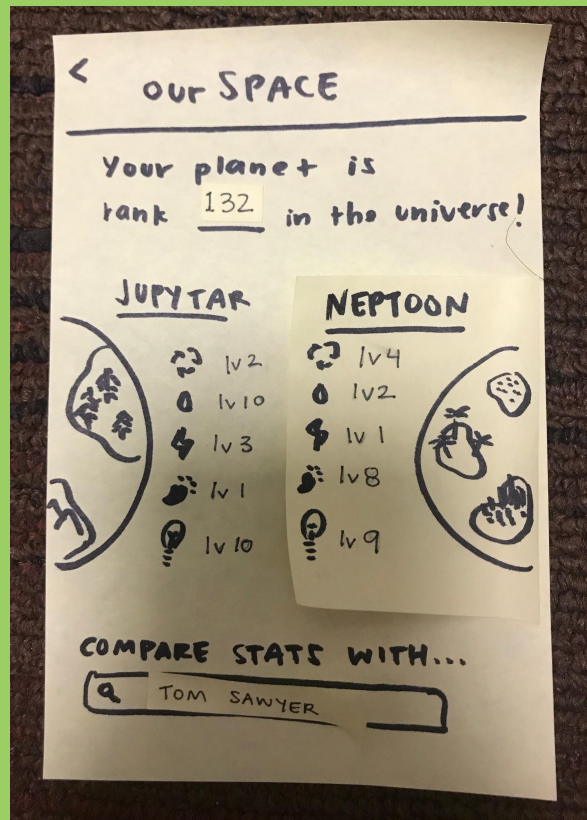 < our SPACE
Your planet is
rank 132 in the universe!
JUPYTAR
lv 2
lv 10
lv 3
lv 1
lv 10
NEPTOON
lv 4
lv 2
lv 1
lv 8
lv 9
COMPARE STATS WITH...
TOM SAWYER